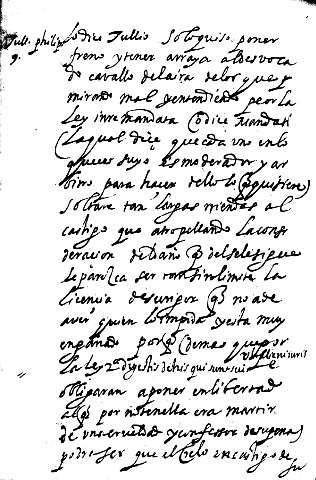 Tull. philip
9.
lo dice Tullio Solo quiso poner
freno y tener a raya al desvoca
do cavallo de la ira del or que
mirando mal y entendiendo peor la
Ley in re mandata Codice Mandati
(la qual dice que cada uno en lo
que es suyo es moderador y ar
bitro para hacer dello lo que quisiere)
soltare tan largas riendas al
castigo que atropellando la consi
deracion del daño q̃ del se le sigue
le parezca ser tan sin limite la
licencia de su rigor q̃ no a de
aver quien lo impida y esta muy
engañado porq̃ demas que por
la ley 2ª digestis de his qui sunt sui
vel alieni iuris
le
obligaran a poner en libertad
al q̃ por no tenella era martir
de una crueldad y confessor de su pena
podra ser que el Cielo en castigo de
su